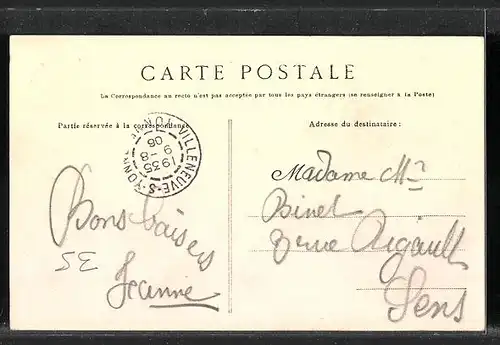 CARTE POSTALE
La Correspondance au recto n'est pas acceptée par tous les pays étrangers (se renseigner à la Poste)
Partie réservée à la correspondance
Adresse du destinataire :
VILLENEUVE-S-YONNE YONNE
1935
9-8
06
Bons baisers
Jeanne
Madame
Binet
rue Rigault
Sens